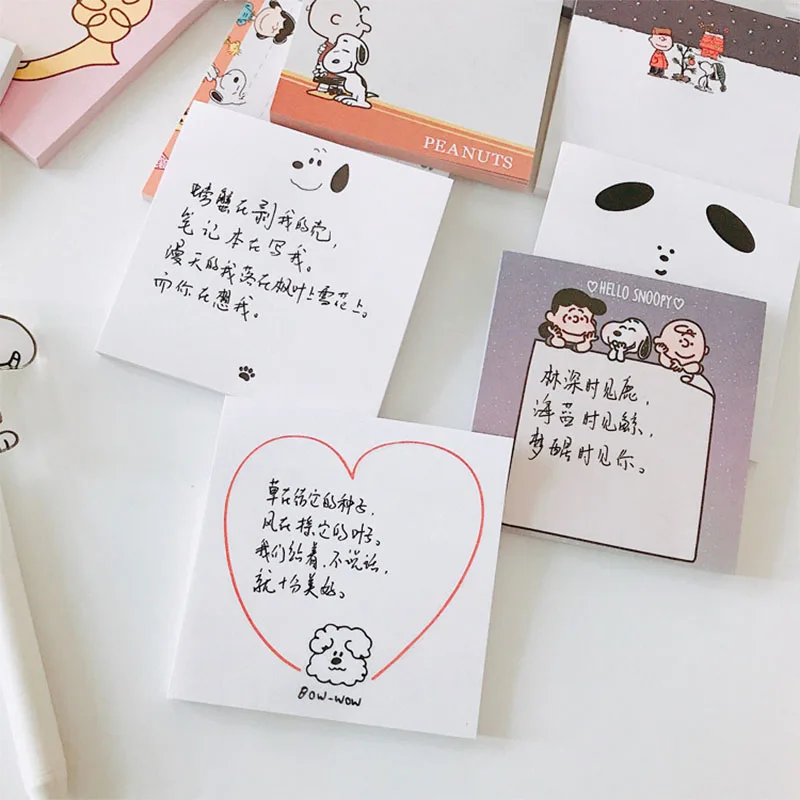 PEANUTS
螃蟹在剥我的壳，
笔记本在写我。
漫天的我落在枫叶上雪花上。
而你在想我。
♡HELLO SNOOPY♡
林深时见鹿，
海蓝时见鲸，
梦醒时见你。
草在结它的种子，
风在摇它的叶子。
我们站着，不说话，
就十分美好。
BOW-WOW